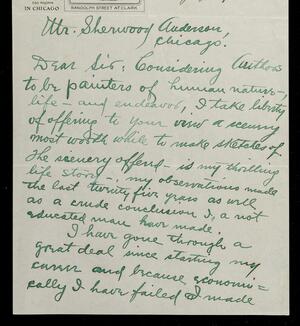 IN CHICAGO
RANDOLPH STREET AT CLARK
Mr. Sherwood Anderson,
Chicago.
Dear Sir, Considering Authors
to be painters of human nature –,
life – and endeavor, I take liberty
of offering to your view a scenery
most worth while to make sketches of.
The scenery offered – is my thrilling
life story –, my observations made
the last twenty five years as well
as a crude conclusion I, a not
educated man have made.
I have gone through a
great deal since starting my
career and because economi=
cally I have failed I made